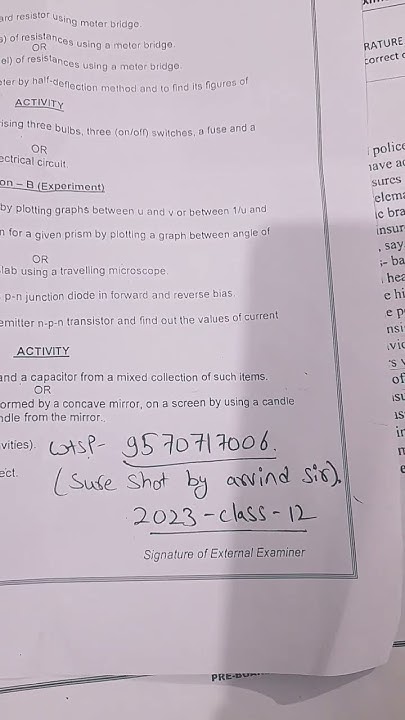 ard resistor using meter bridge.
s) of resistances using a meter bridge.
OR
el) of resistances using a meter bridge.
eter by half-deflection method and to find its figures of
ACTIVITY
ising three bulbs, three (on/off) switches, a fuse and a
OR
ectrical circuit.
on – B (Experiment)
by plotting graphs between u and v or between 1/u and
n for a given prism by plotting a graph between angle of
OR
lab using a travelling microscope.
p-n junction diode in forward and reverse bias.
emitter n-p-n transistor and find out the values of current
ACTIVITY
and a capacitor from a mixed collection of such items.
OR
ormed by a concave mirror, on a screen by using a candle
ndle from the mirror..
vities). WTSP- 9570717006.
ect. (Sure Shot by arvind Sir).
2023-class-12
Signature of External Examiner
RATURE
correct
police
have
sures
elem
ic bra
insur
, say
;- ba
hea
e hi
e p
nsi
of
PRE-BOA